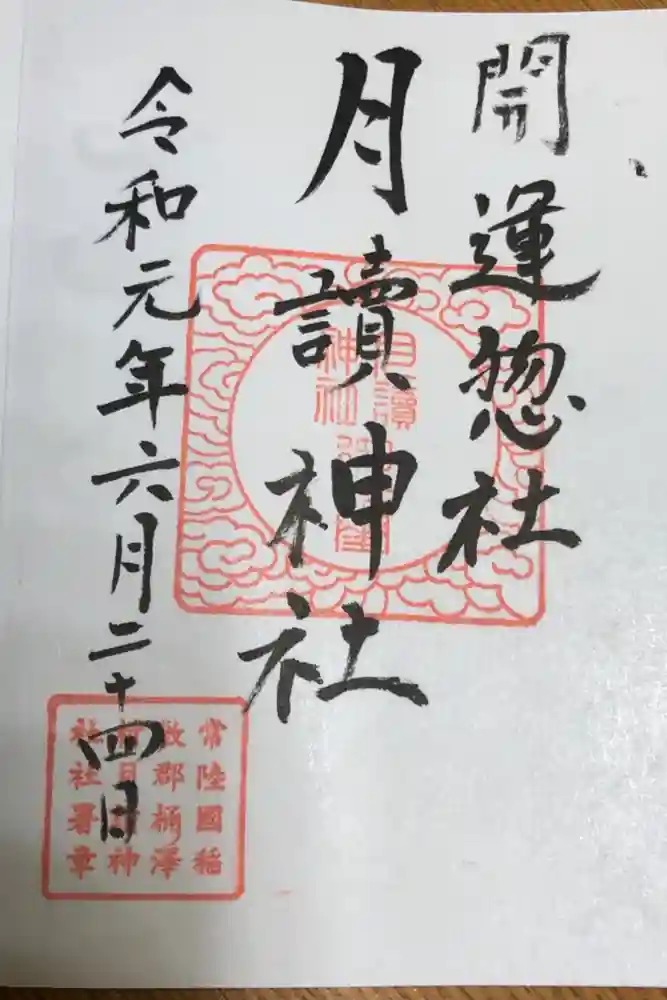 開運惣社
月讀神社
令和元年六月二十四日
月讀
神社
常陸國稲
敷郡桶澤
村月讀神
社社署章